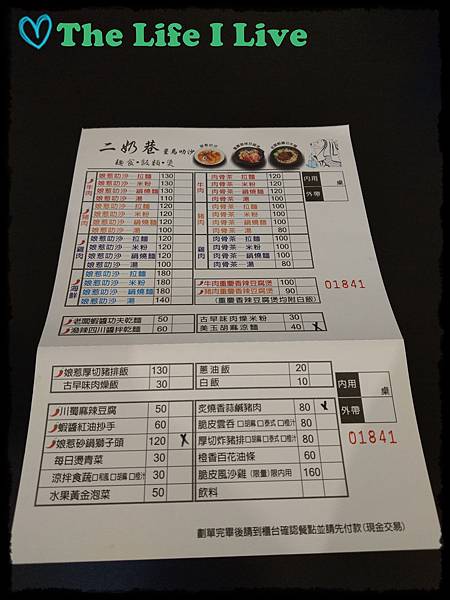 The Life I Live
二奶巷 星馬叻沙
麵食•飯類•煲
牛肉 娘惹叻沙─拉麵 130
娘惹叻沙─米粉 130
娘惹叻沙─鍋燒麵 130
娘惹叻沙─湯 110
豬肉 娘惹叻沙─拉麵 120
娘惹叻沙─米粉 120
娘惹叻沙─鍋燒麵 120
娘惹叻沙─湯 100
雞肉 娘惹叻沙─拉麵 120
娘惹叻沙─米粉 120
娘惹叻沙─鍋燒麵 120
娘惹叻沙─湯 100
海鮮 娘惹叻沙─拉麵 180
娘惹叻沙─米粉 180
娘惹叻沙─鍋燒麵 180
娘惹叻沙─湯 140
牛肉 肉骨茶─拉麵 120
肉骨茶─米粉 120
肉骨茶─鍋燒麵 120
肉骨茶─湯 100
豬肉 肉骨茶─拉麵 100
肉骨茶─米粉 100
肉骨茶─鍋燒麵 100
肉骨茶─湯 80
雞肉 肉骨茶─拉麵 100
肉骨茶─米粉 100
肉骨茶─鍋燒麵 100
肉骨茶─湯 80
牛肉重慶香辣豆腐煲 100
豬肉重慶香辣豆腐煲 90
(重慶香辣豆腐煲均附白飯)
內用 桌
外帶
01841
老闆蝦醬功夫乾麵 50
潑辣四川醬拌乾麵 60
古早味肉燥米粉 30
美玉胡麻涼麵 40
娘惹厚切豬排飯 130
古早味肉燥飯 30
蔥油飯 20
白飯 10
內用 桌
外帶
01841
川蜀麻辣豆腐 50
蝦醬紅油抄手 60
娘惹砂鍋獅子頭 120
每日燙青菜 30
涼拌食蔬□和風□胡麻□橙汁 30
水果黃金泡菜 50
炙燒香蒜鹹豬肉 80
脆皮雲吞□胡麻□泰式□橙汁 80
厚切炸豬排□胡麻□泰式□橙汁 80
橙香百花油條 60
脆皮風沙雞(限量)限內用 160
飲料
劃單完畢後請到櫃台確認餐點並請先付款(現金交易)